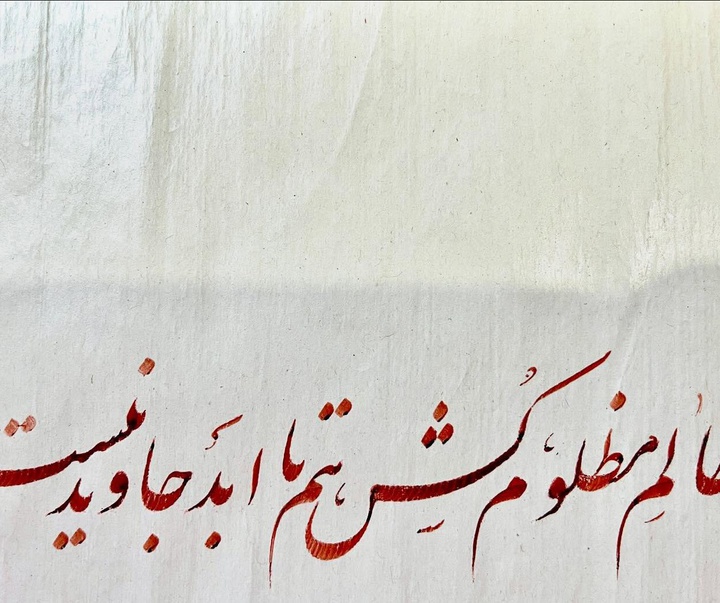 ظالمِ مظلوم کُشِ هم تا ابد جاوید نیست